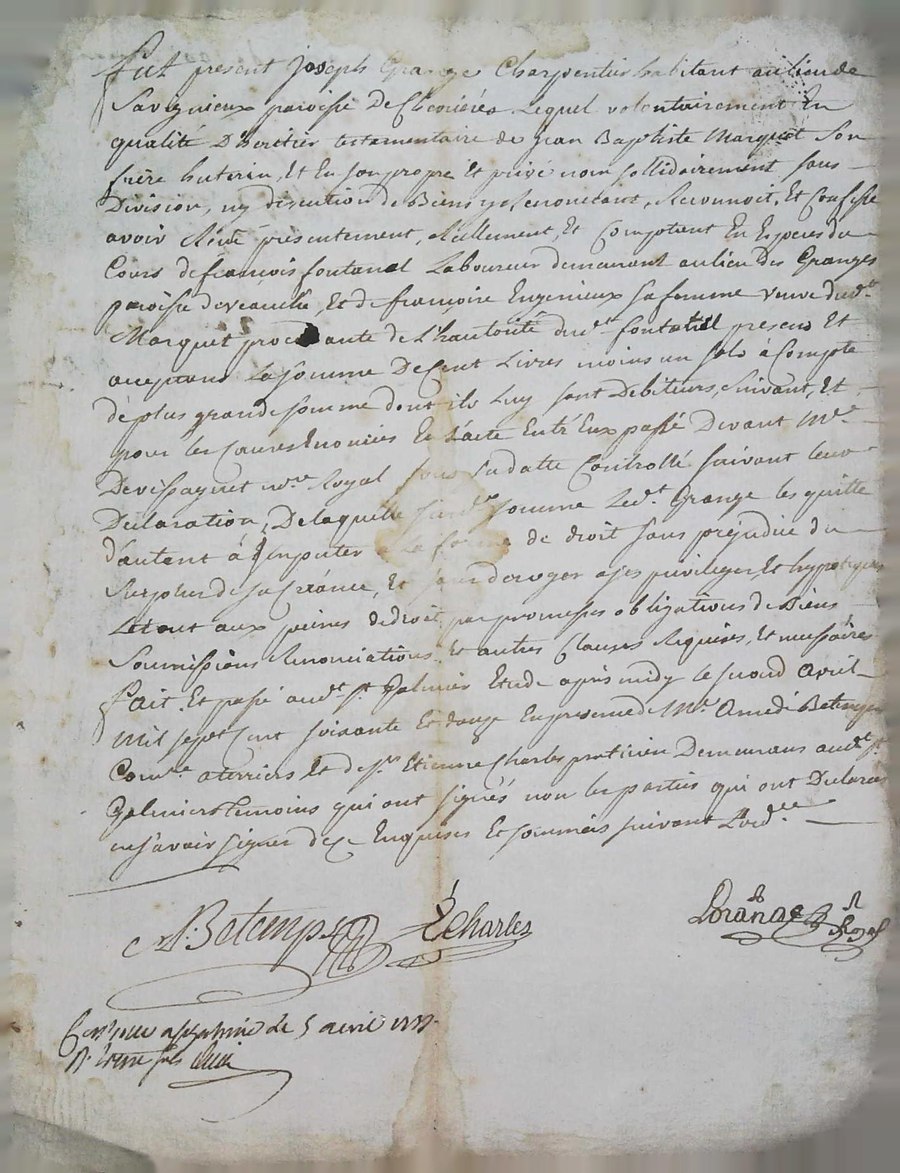 Fut present Joseph Grange Charpentier habitant au lieu de
Savignieux paroisse De Chevrières Lequel volontairement En
qualité D'heritier testamentaire de Jean Baptiste Marquet Son
frère huterin, Et En Son propre Et privé nom sollidairement sans
Division, ny discution de Biens y Renoncant, Reconnoit, Et Confesse
avoir Reçu présentement, Réellement, Et Comptant En Especes du
Cours de françois fontanel Laboureur demeurant au lieu des Granges
paroisse de veauche, Et de françoise Engenieux sa femme veuve dud.t
Marquet procedante de L'hautorité dud.t fontanel presens Et
aceptans La Somme De Cent Livres moins un Solo à Compte
de plus grande somme dont ils Luy sont Debiteurs, suivant, Et
pour les Causes Enoncées En L'acte Entr'Eux passé Devant M.e
Devissaguet no.re Royal sous sa datte Controllé suivant leur
Declaration, De laquelle susd.e somme Led.t Grange les quitte
d'autant à Jmputer de droit sans prejudice du
Surplus de sa Créance, Et sans deroger a ses privileges, Et hypoteques
Le tout aux peines de droit, par promesses obligations de Biens
Soumissions Renonciations, et autres Clauses Requises, Et necessaires
Fait, Et passé aud.t S.t Galmier Etude après midy le second Avril
mil sept cent soixante Et douze En presence de M.r Amedé Betemps
Com.re a terriers Et de S.r Etienne Charles praticien Demeurans aud.t S.t
Galmier temoins qui ont signés non les parties qui ont Declarées
ne savoir signer de ce Enquises Et sommées suivant L'ord.ce
A: Betemps E Charles
Lorange n.re Royal
Con.rolle a St galmier le 5 avril 1772